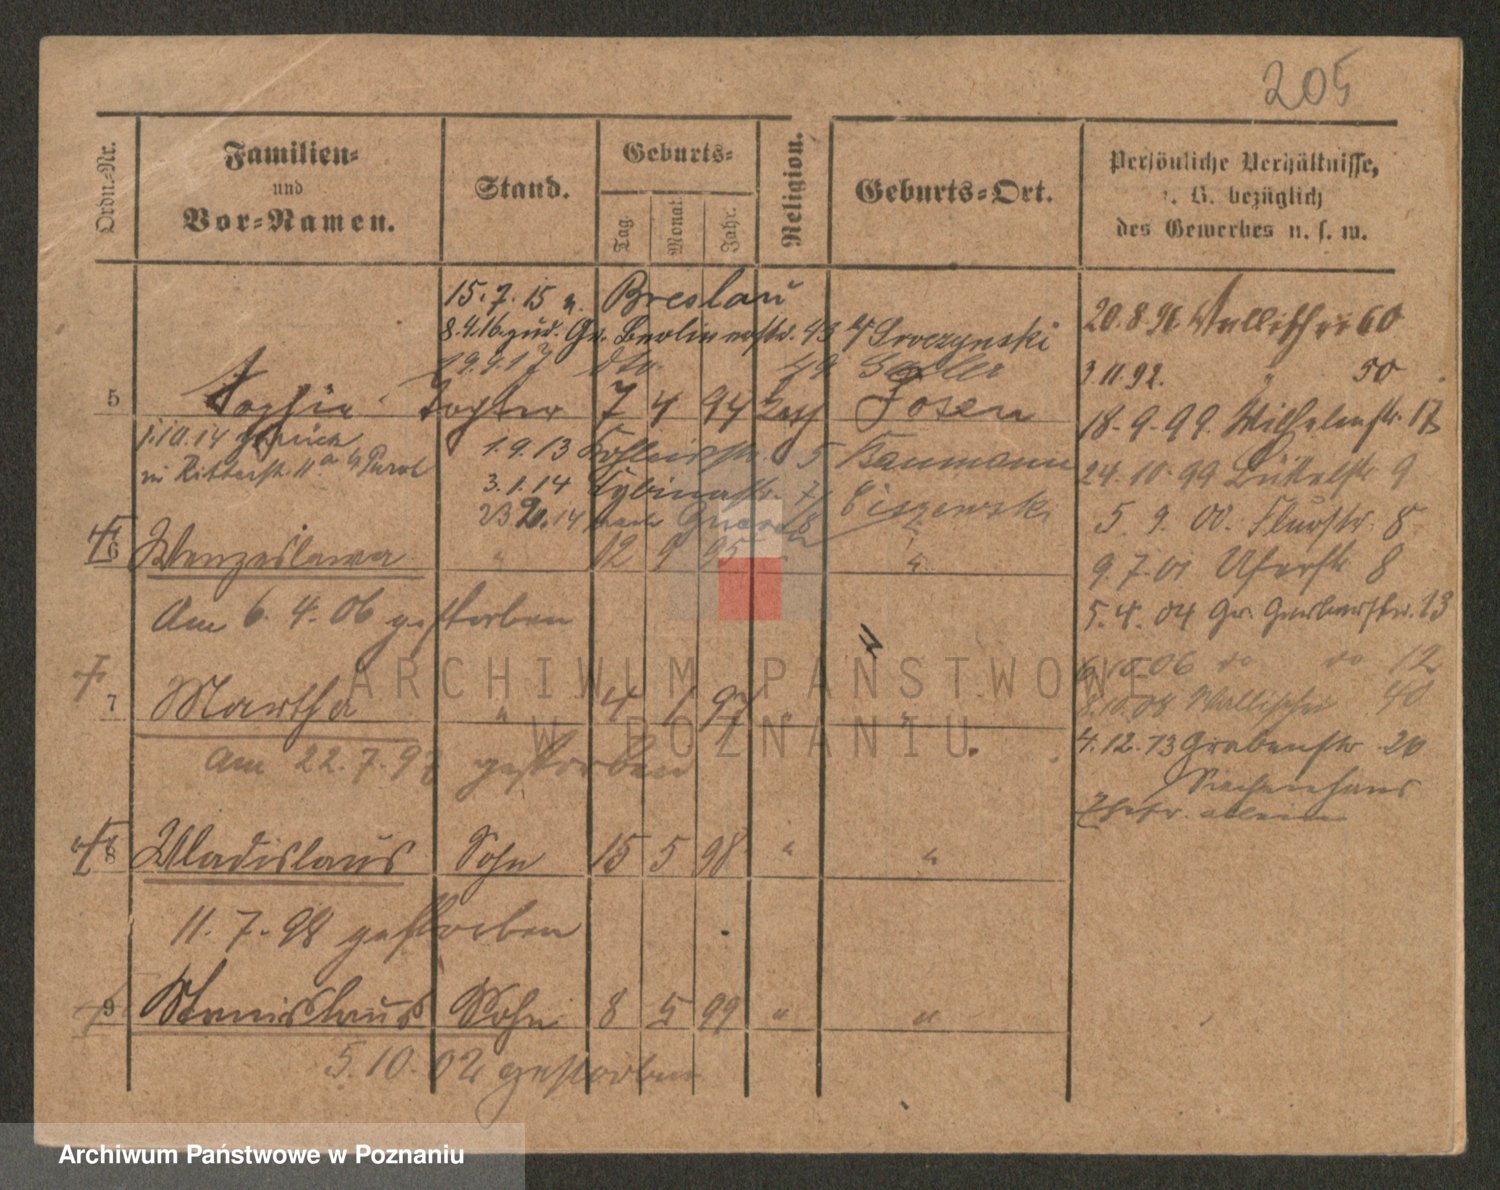 205
Ordn.-Nr.
Familien-
und
Vor-Namen.
Stand.
Geburts-
Tag.
Monat.
Jahr.
Religion.
Geburts-Ort.
Persönliche Verhältnisse,
z. B. bezüglich
des Gewerbes u. s. w.
15.7.15 n. Breslau
8.4.16 zud. Gr. Berlinerstr. 43 Sroczynski
19.9.17 dto. 49
20.8.91 Wallischei 60
3.11.92. " 50
5 Sophie Tochter 7 4 94 Posen
1.10.14 zurück
in Ritterstr. 11a b/
1.9.13 5 Baumann
3.1.14 Cybinastr. 7 Ciszewski
14 nach
18.9.99. Wilhelmstr. 17
24.10.99 Büttelstr. 9
5. 9. 00. Flurstr. 8
9.7.01 Uferstr. 8
5.4.04 Gr. Gerberstr. 13
6.10.06 do do 12
8.10.08 Wallischei 40
4.12.13 Grabenstr. 26
Siechenhaus
Ehefr. allein
6 Wenzeslawa " 12 9 95 " "
Am 6.4.06 gestorben
7 Martha " 4 1 97 " "
Am 22.7.97 gestorben
8 Wladislaus Sohn 15 5 98 " "
11.7.98 gestorben
9 Stanislaus Sohn 8 5 99 " "
5.10.02 gestorben
ARCHIWUM PAŃSTWOWE
W POZNANIU
Archiwum Państwowe w Poznaniu